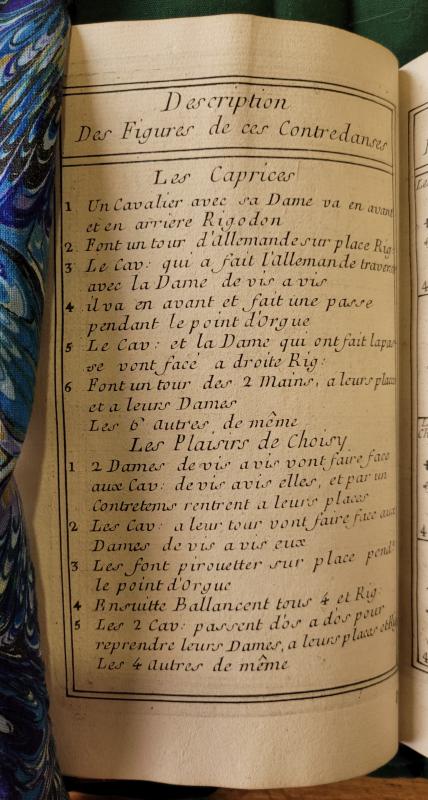 Description
Des Figures de ces Contredanses
Les Caprices
1 Un Cavalier avec sa Dame va en avant
et en arriere Rigodon
2 Font un tour d'allemande sur place Rig:
3 Le Cav: qui a fait l'Allemande traverse
avec la Dame de vis a vis
4 il va en avant et fait une passe
pendant le point d'Orgue
5 Le Cav: et la Dame qui ont fait la pas
se vont face a droite Rig:
6 Font un tour des 2 Mains, a leurs places
et a leurs Dames
Les 6 autres de même
Les Plaisirs de Choisy
1 2 Dames de vis a vis vont faire face
aux Cav: de vis a vis elles, et par un
Contretems rentrent a leurs places
2 Les Cav: a leur tour vont faire face aux
Dames de vis a vis eux
3 Les font pirouetter sur place pend.t
le point d'Orgue
4 Ensuitte Ballancent tous 4 et Rig:
5 Les 2 Cav: passent dos a dos pour
reprendre leurs Dames, a leurs places et
Les 4 autres de même